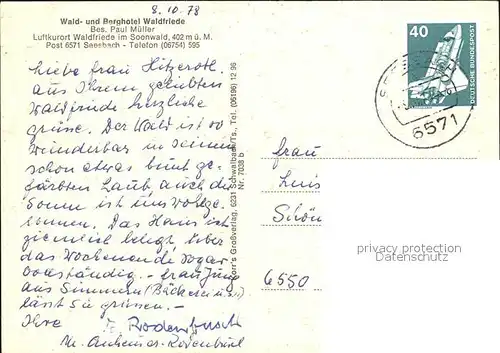 8.10.78
Wald- und Berghotel Waldfriede
Bes. Paul Müller
Luftkurort Waldfriede im Soonwald, 402 m ü. M.
Post 6571 Seesbach - Telefon (06754) 595
Liebe Frau Hitzeroth.
aus Ihrem geliebten
Waldfriede herzliche
Grüsse. Der Wald ist so
wunderbar in seinem
schon etwas bunt ge-
färbten Laub, auch die
Sonne ist uns wohlge-
sonnen. Das Haus ist
ziemlich belegt, über
das Wochenende sogar
vollständig. - Frau Jung
aus Simmern (Bäckerei
lässt Sie grüssen. -
Ihre
orr's Großverlag, 6231 Schwalbach/Ts., Tel. (06196) 12 96
Nr. 7038 b
40
DEUTSCHE BUNDESPOST
6571
Frau
Luis
Schön
6550
privacy protection
Datenschutz